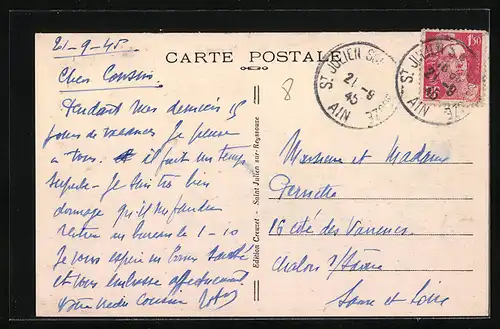 21-9-45
CARTE POSTALE
Chers Cousins.
Pendant mes derniers 15
jours de vacances je pense
à vous. il fait un temps
superbe - Je suis très bien
dommage qu'il me faudra
rentrer au bureau le 1-10
Je vous espère en bonne santé
et vous embrasse affectueusement
Votre cousine
Edition Creuzet - Saint Julien sur-Reyssouze
8
ST JULIEN SUR
21-9
45
AIN
ST JULIEN S
21-9
45
AIN
1f50
Monsieur et Madame
16 cité des Varennes
Chalon s/Saône
Saone et Loire